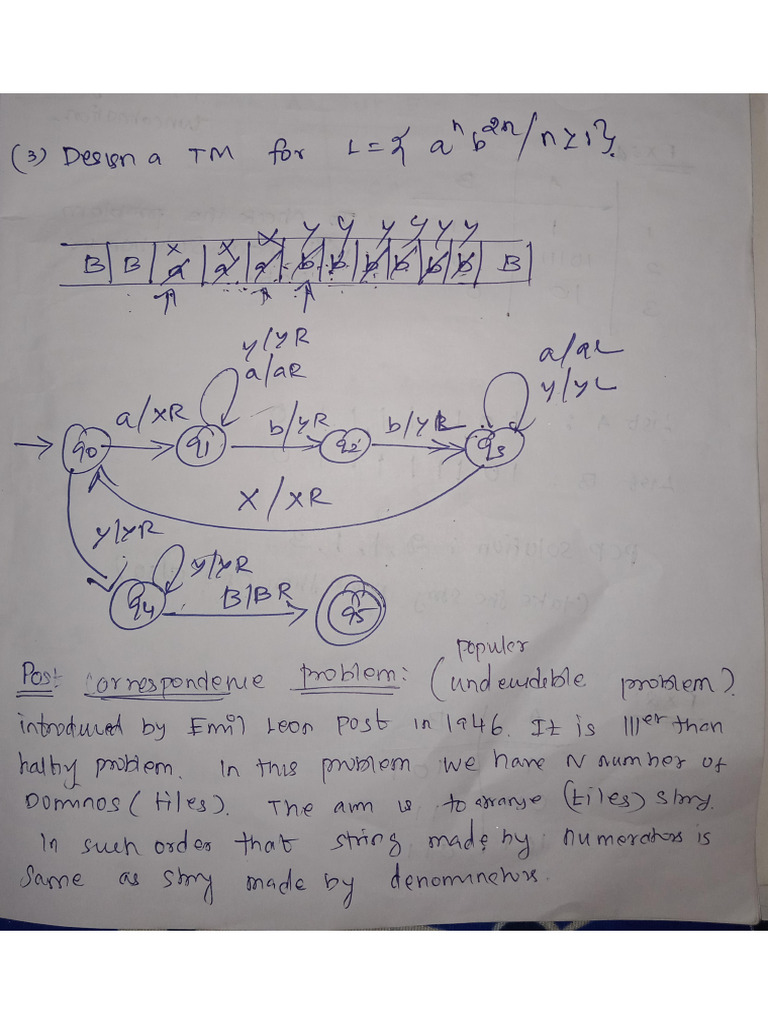 (3) Design a TM for L = { aⁿ b²ⁿ / n ≥ 1 }.
x x x y y y y y y
B B a a a b b b b b b B
y/yR
a/aR
a/aL
y/yL
a/xR b/yR b/yL
q0 q1 q2 q3
x/xR
y/yR
y/yR
q4 B/BR q5
populer
Post Correspondence problem: (undecidable problem).
introduced by Emil Leon Post in 1946. It is lller than
halby problem. In this problem we have N number of
Dominos (tiles). The aim is to arrange (tiles) string.
In such order that string made by numerators is
same as string made by denominators.